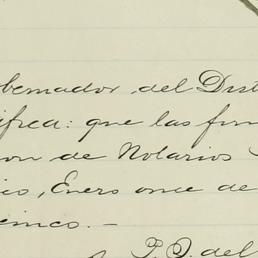 obernador del Dist
ifica: que las fir
on de Notarios
ico, Enero once de
cinco.—
P. O. del